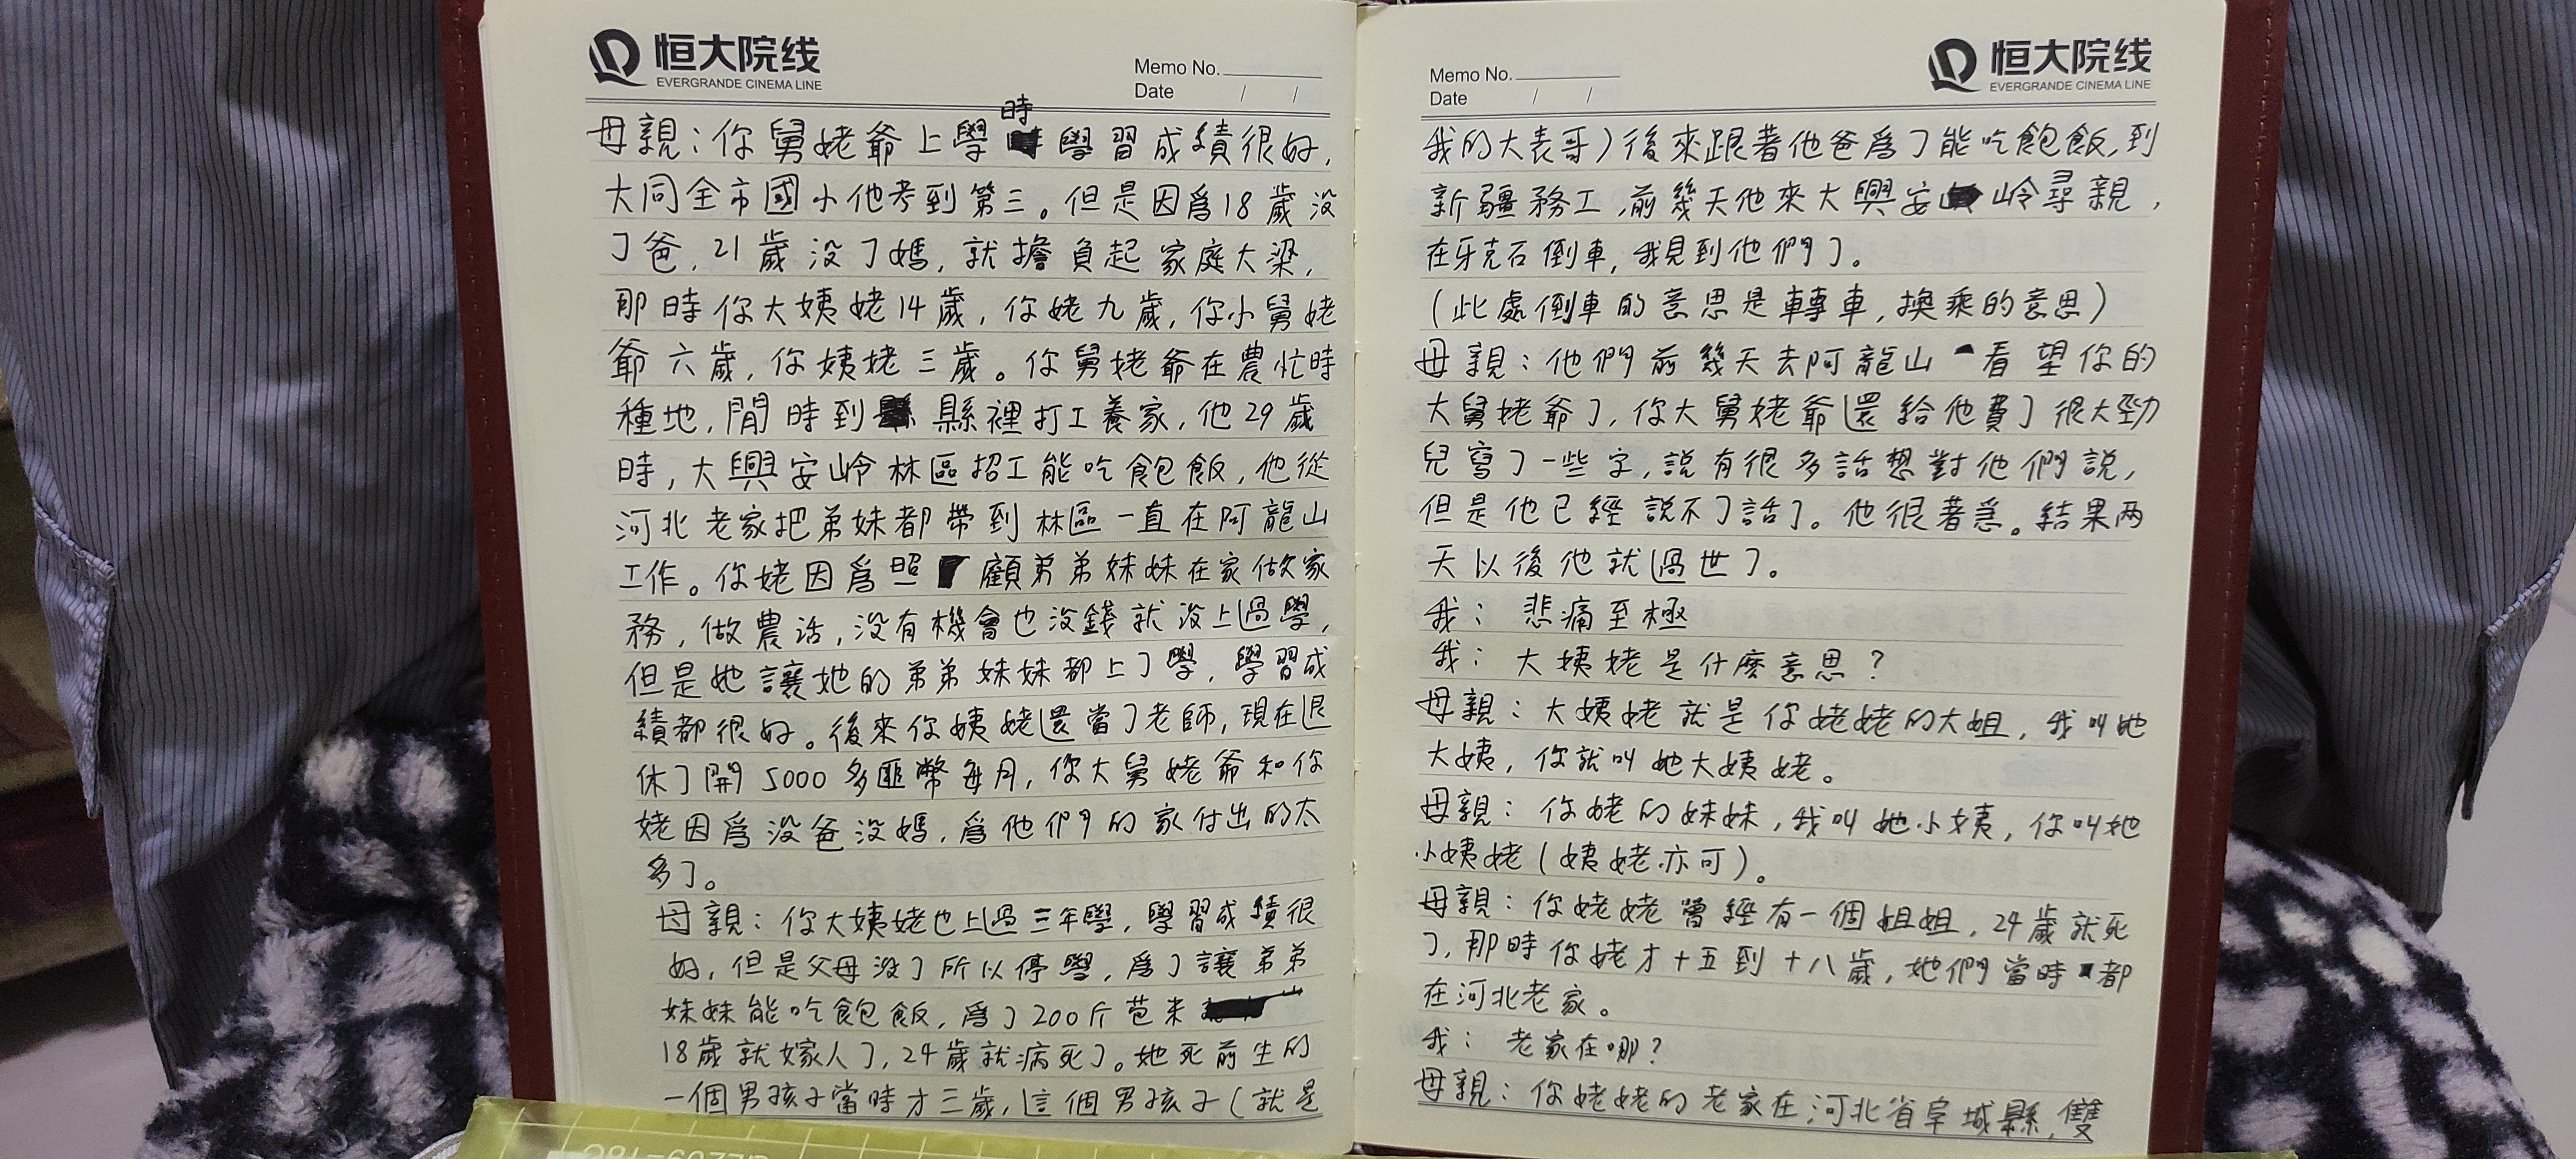 恒大院线
EVERGRANDE CINEMA LINE
Memo No.
Date / /
時
母親：你舅姥爺上學學習成績很好，
大同全市國小他考到第三。但是因爲18歲没
了爸，21歲没了媽，就擔負起家庭大梁，
那時你大姨姥14歲，你姥九歲，你小舅姥
爺六歲，你姨姥三歲。你舅姥爺在農忙時
種地，閒時到縣裡打工養家，他29歲
時，大興安岭林區招工能吃飽飯，他從
河北老家把弟妹都帶到林區一直在阿龍山
工作。你姥因爲照顧弟弟妹妹在家做家
務，做農活，没有機會也没錢就没上過學，
但是她讓她的弟弟妹妹都上了學，學習成
績都很好。後來你姨姥還當了老師，現在退
休了開5000多匪幣每月，你大舅姥爺和你
姥因爲没爸没媽，爲他們的家付出的太
多了。
母親：你大姨姥也上過三年學，學習成績很
好，但是父母没了所以停學，爲了讓弟弟
妹妹能吃飽飯，爲了200斤苞米
18歲就嫁人了，24歲就病死了。她死前生的
一個男孩子當時才三歲，這個男孩子（就是
Memo No.
Date / /
恒大院线
EVERGRANDE CINEMA LINE
我的大表哥）後來跟著他爸爲了能吃飽飯，到
新疆務工，前幾天他來大興安岭尋親，
在牙克石倒車，我見到他們了。
（此處倒車的意思是轉車，換乘的意思）
母親：他們前幾天去阿龍山看望你的
大舅姥爺了，你大舅姥爺還給他費了很大勁
兒寫了一些字，說有很多話想對他們說，
但是他已經說不了話了。他很著急。結果两
天以後他就過世了。
我：悲痛至極
我：大姨姥是什麼意思？
母親：大姨姥就是你姥姥的大姐，我叫她
大姨，你就叫她大姨姥。
母親：你姥的妹妹，我叫她小姨，你叫她
小姨姥（姨姥亦可）。
母親：你姥姥曾經有一個姐姐，24歲就死
了，那時你姥才十五到十八歲，她們當時都
在河北老家。
我：老家在哪？
母親：你姥姥的老家在河北省阜城縣，雙